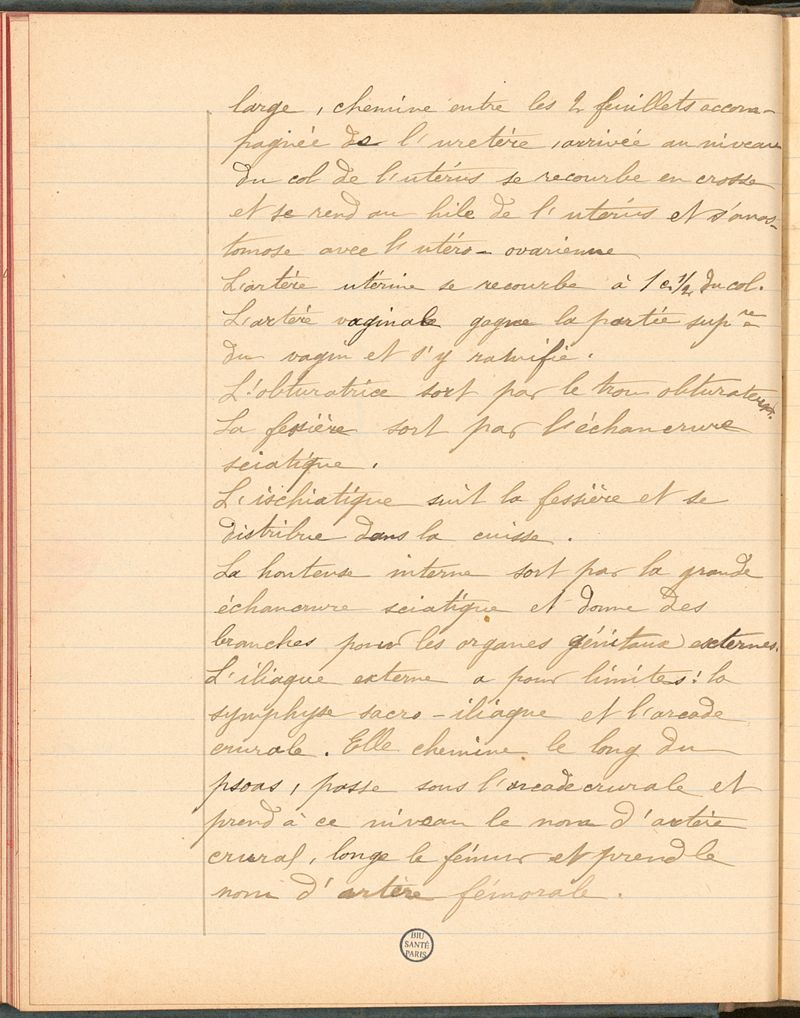 large, chemine entre les 2 feuillets accom-
pagnée de l'uretère, arrivée au niveau
du col de l'utérus se recourbe en crosse
et se rend au hile de l'utérus et s'anas-
tomose avec l'utéro-ovarienne
L'artère utérine se recourbe à 1 c. 1/2 du col.
L'artère vaginale gagne la partie supre
du vagin et s'y ramifie.
L'obturatrice sort par le trou obturateur.
La fessière sort par l'échancrure
sciatique.
L'ischiatique suit la fessière et se
distribue dans la cuisse.
La honteuse interne sort par la grande
échancrure sciatique et donne des
branches pour les organes génitaux externes.
L'iliaque externe a pour limites: la
symphyse sacro-iliaque et l'arcade
crurale. Elle chemine le long du
psoas, passe sous l'arcade crurale et
prend à ce niveau le nom d'artère
crural, longe le fémur et prend le
nom d'artère fémorale.
BIU
SANTÉ
PARIS